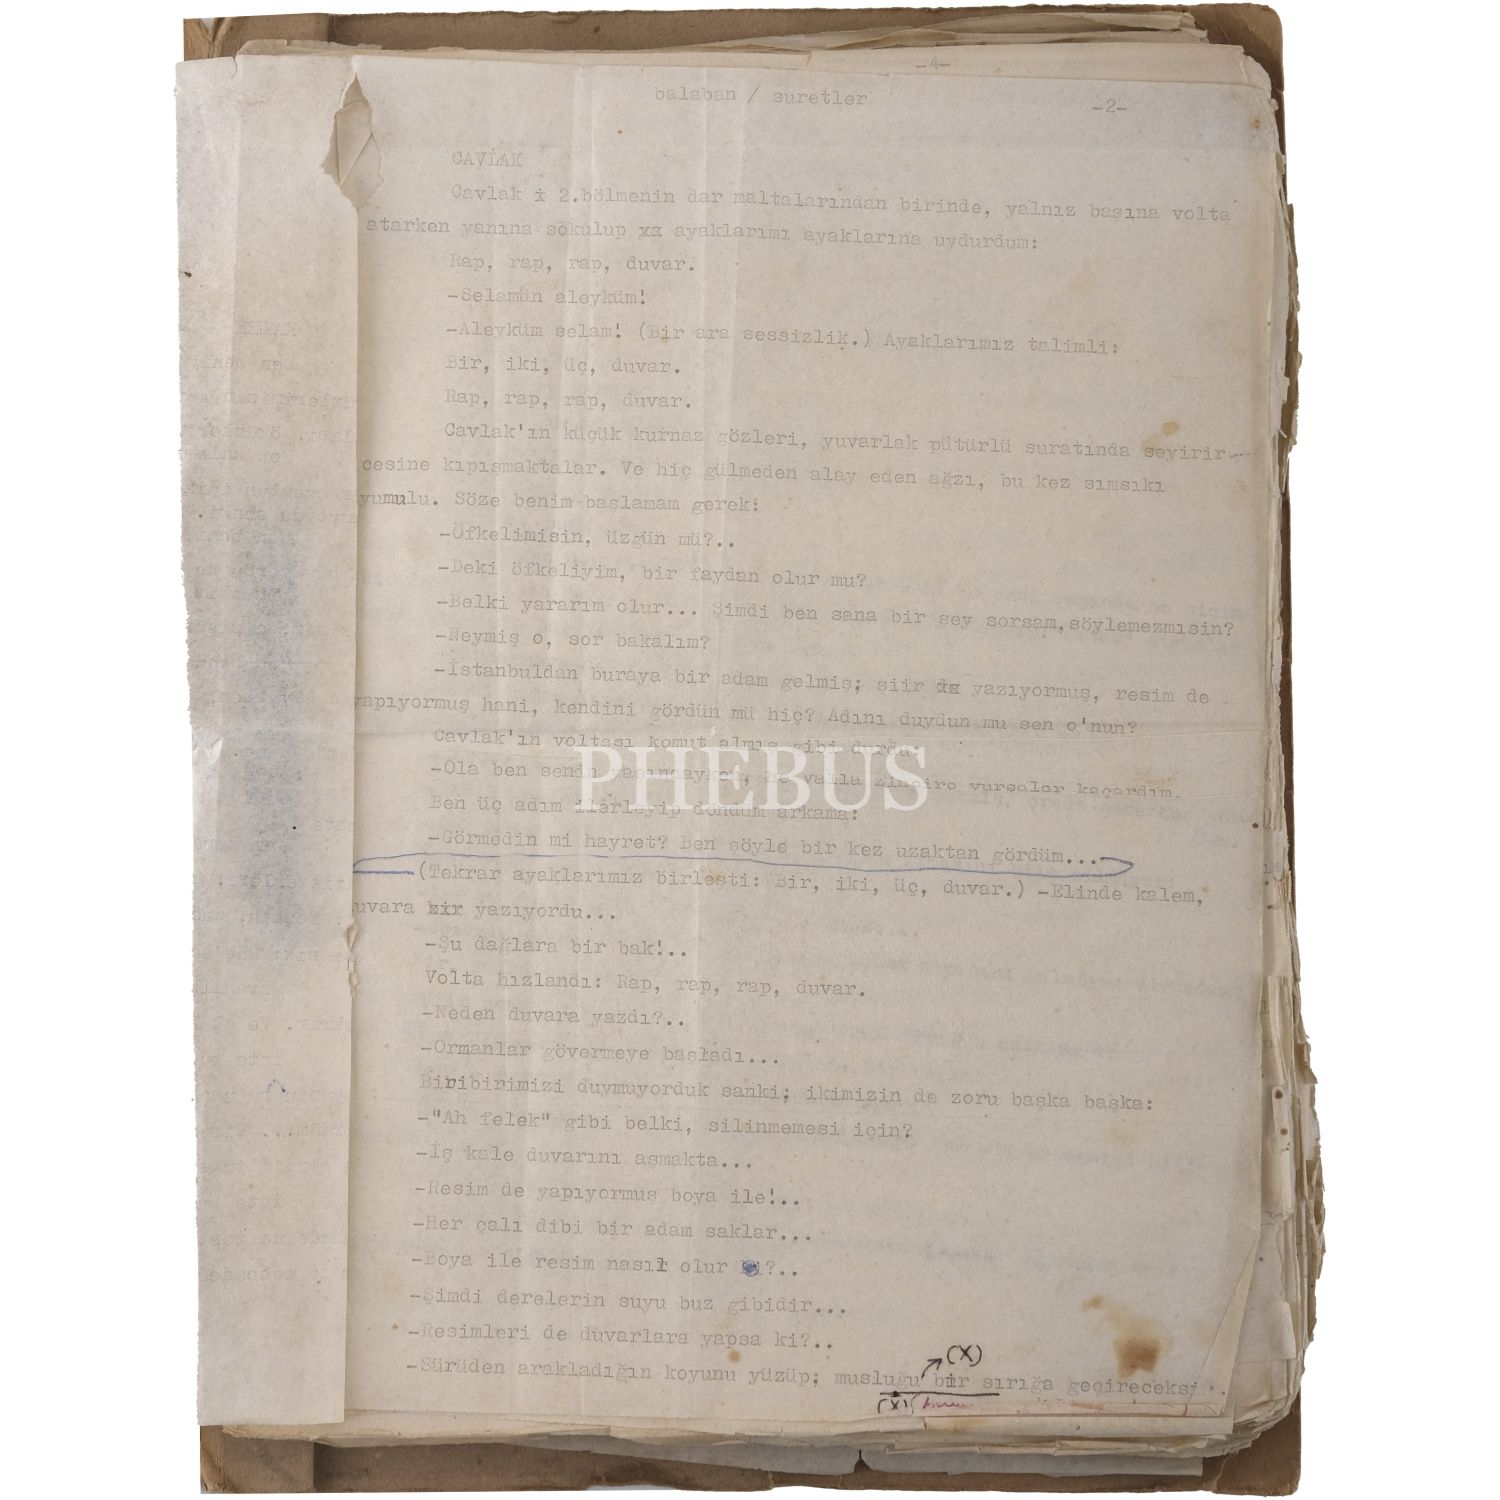 -4-
balaban / suretler -2-
CAVLAK
Cavlak i 2.bölmenin dar maltalarından birinde, yalnız başına volta
atarken yanına sokulup xa ayaklarımı ayaklarına uydurdum:
Rap, rap, rap, duvar.
-Selamün aleyküm!
-Aleyküm selam! (Bir ara sessizlik.) Ayaklarımız talimli:
Bir, iki, üç, duvar.
Rap, rap, rap, duvar.
Cavlak'ın küçük kurnaz gözleri, yuvarlak pütürlü suratında seyirir-
cesine kıpışmaktalar. Ve hiç gülmeden alay eden ağzı, bu kez sımsıkı
yumulu. Söze benim başlamam gerek:
-Öfkelimisin, üzgün mü?..
-Deki öfkeliyim, bir faydan olur mu?
-Belki yararım olur... Şimdi ben sana bir şey sorsam,söylemezmisin?
-Neymiş o, sor bakalım?
-İstanbuldan buraya bir adam gelmiş; şiir yazıyormuş, resim de
yapıyormuş hani, kendini gördün mü hiç? Adını duydun mu sen o'nun?
Cavlak'ın voltası komut almış gibi durdu
-Ola ben senin valla zincire vursalar kaçardım.
Ben üç adım ilerleyip döndüm arkama:
PHEBUS
-Görmedin mi hayret? Ben şöyle bir kez uzaktan gördüm...
(Tekrar ayaklarımız birleşti: Bir, iki, üç, duvar.) -Elinde kalem,
uvara yazıyordu...
-Şu dağlara bir bak!..
Volta hızlandı: Rap, rap, rap, duvar.
-Neden duvara yazdı?..
-Ormanlar gövermeye başladı...
Biribirimizi duymuyorduk sanki; ikimizin de zoru başka başka:
-"Ah felek" gibi belki, silinmemesi için?
-İş kale duvarını aşmakta...
-Resim de yapıyormuş boya ile!..
-Her çalı dibi bir adam saklar...
-Boya ile resim nasıl olur ki?..
-Şimdi derelerin suyu buz gibidir...
-Resimleri de duvarlara yapsa ki?..
(X)
-Sürüden arakladığın koyunu yüzüp; musluğu bir sırığa geçireceksi
(X)